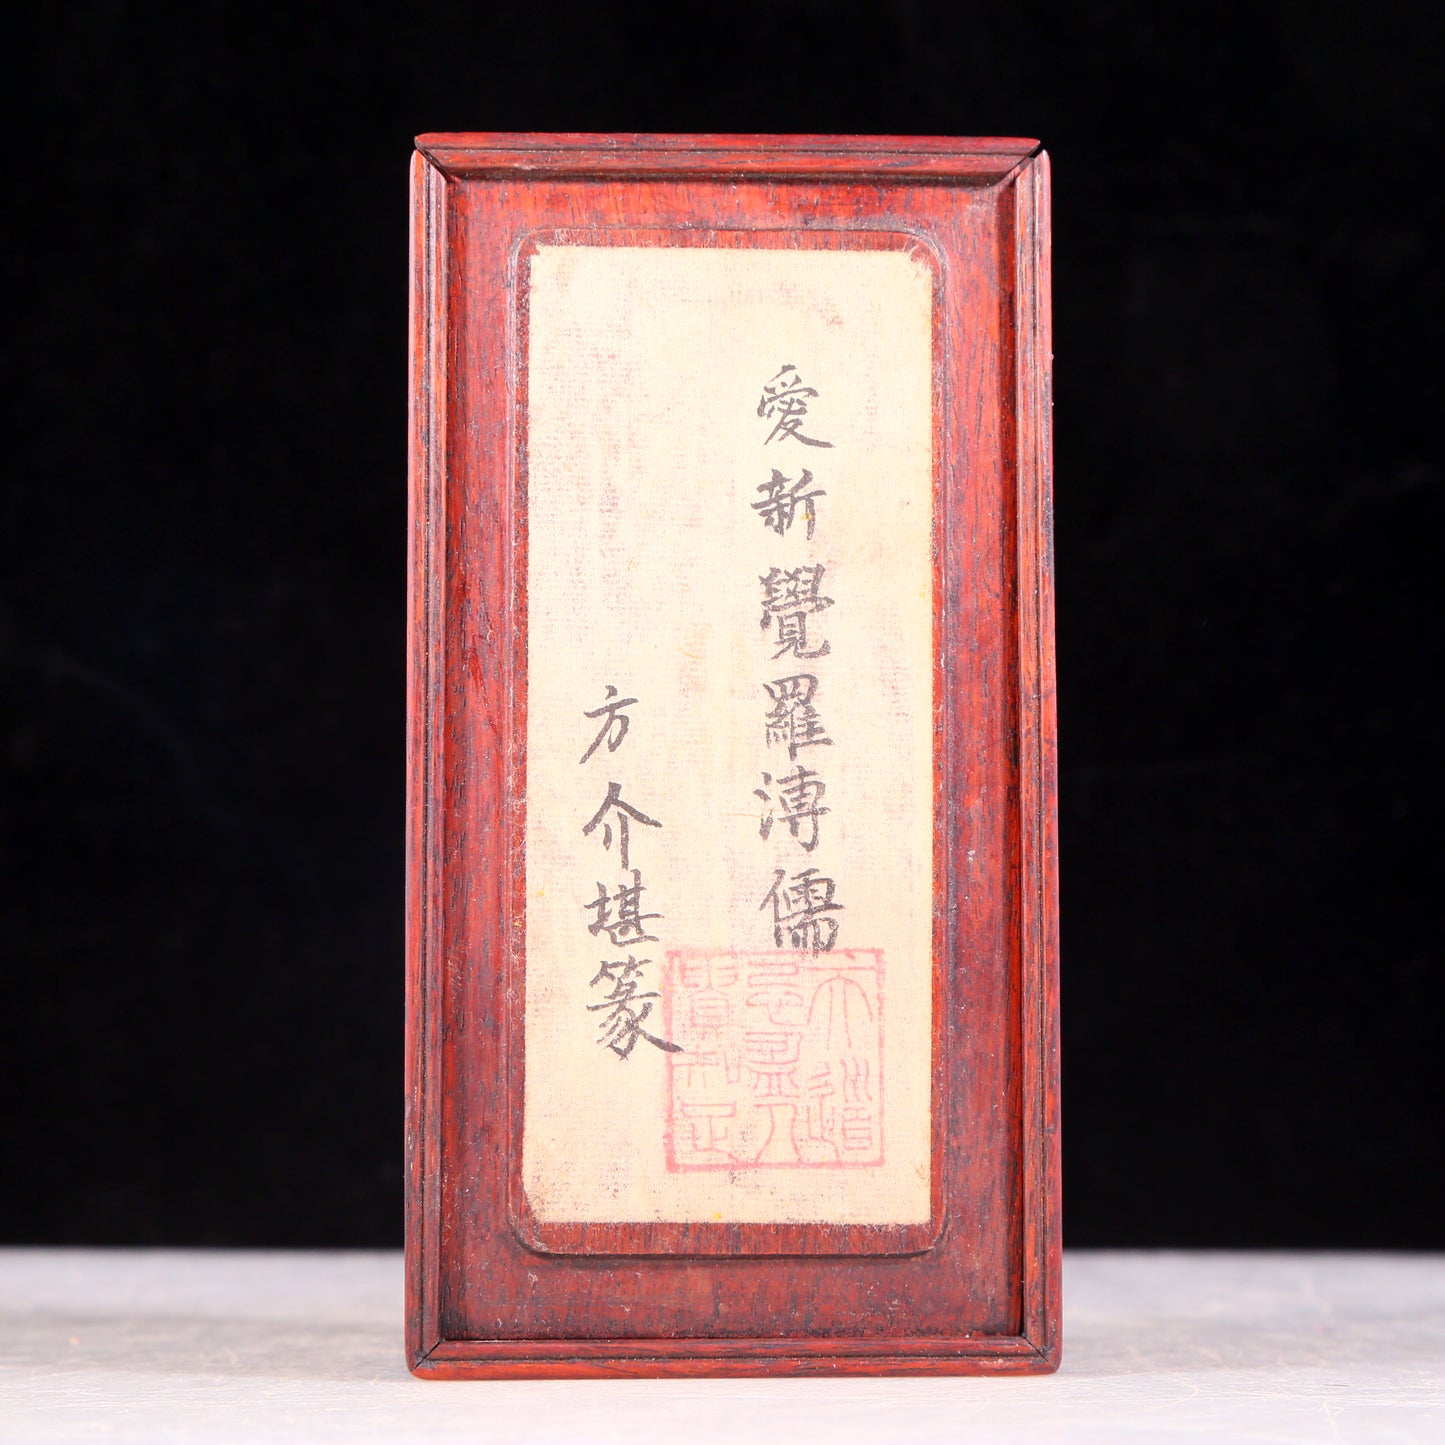 愛新覺羅溥儒
方介堪篆